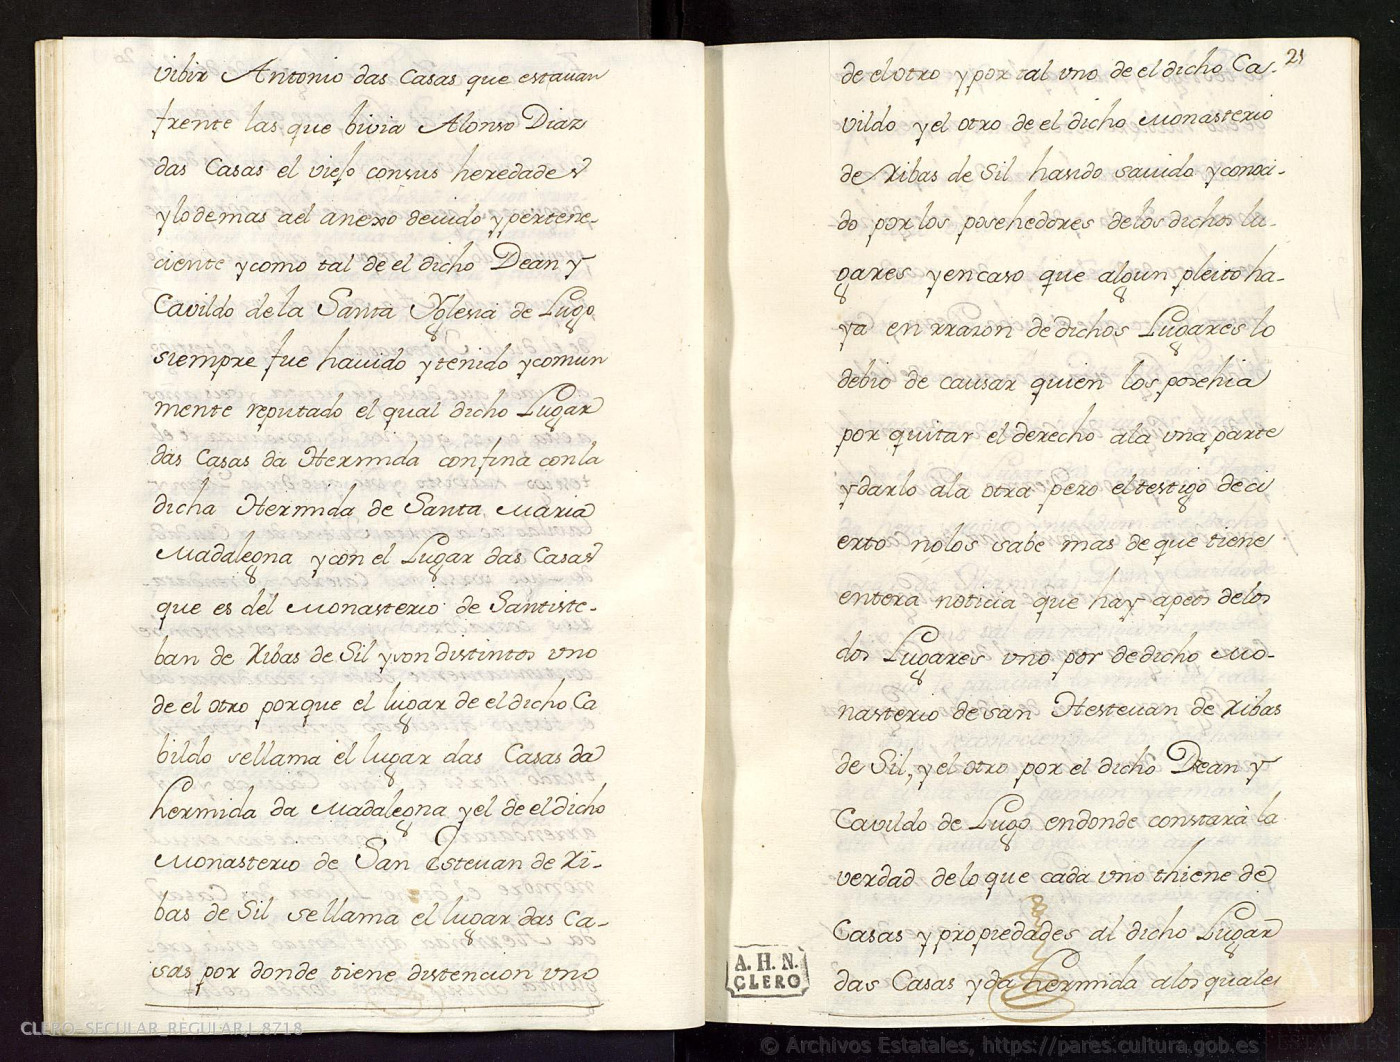 vibir Antonio das Casas que estavan
frente las que bivia Alonso Diaz
das Casas el viejo consus heredades
ylodemas ael anexo devido y pertene-
ciente ycomo tal de el dicho Dean y
Cavildo dela Santa Yglesia de Lugo,
siempre fue havido ytenido ycomun
mente reputado el qual dicho Lugar
das Casas da Hermida confina conla
dicha Hermida de Santa Maria
Madalegna ycon el Lugar das Casas
que es del Monasterio de Santiste-
ban de Ribas de Sil yson distintos uno
de el otro porque el lugar de el dicho Ca
bildo sellama el lugar das Casas da
hermida da Madalegna yel de el dicho
Monasterio de San Estevan de Ri-
bas de Sil sellama el lugar das Ca-
sas por donde tiene distencion uno
21
de el otro y por tal uno de el dicho Ca-
vildo yel otro de el dicho Monasterio
de Ribas de Sil hasido savido yconoci-
do por los posehedores delos dichos lu-
gares yencaso que algun pleito ha-
ya en rraion de dichos Lugares lo
debio de causar quien los posehia
por quitar el derecho ala una parte
ydarlo ala otra pero eltestigo deci
erto nolos sabe mas de que tiene
entera noticia que hay apeos delos
dos Lugares uno por de dicho Mo-
nasterio de san Hestevan de Ribas
de Sil, yel otro por el dicho Dean y
Cavildo de Lugo endonde constarà la
verdad delo que cada uno thiene de
Casas y propiedades al dicho Lugar
das Casas yda hermida alos quales
A. H. N.
CLERO
CLERO-SECULAR_REGULAR,L.8718
© Archivos Estatales, https://pares.cultura.gob.es
ARCHIVOS
ESTATALES